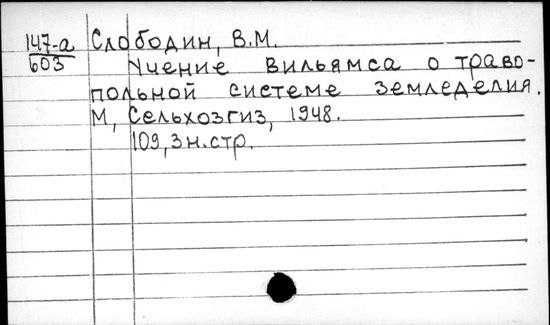 147-а Слободин, В.М.
603 Учение Вильямса о траво-
польной системе земледелия.
М, Сельхозгиз, 1948.
109, 3 н. стр.